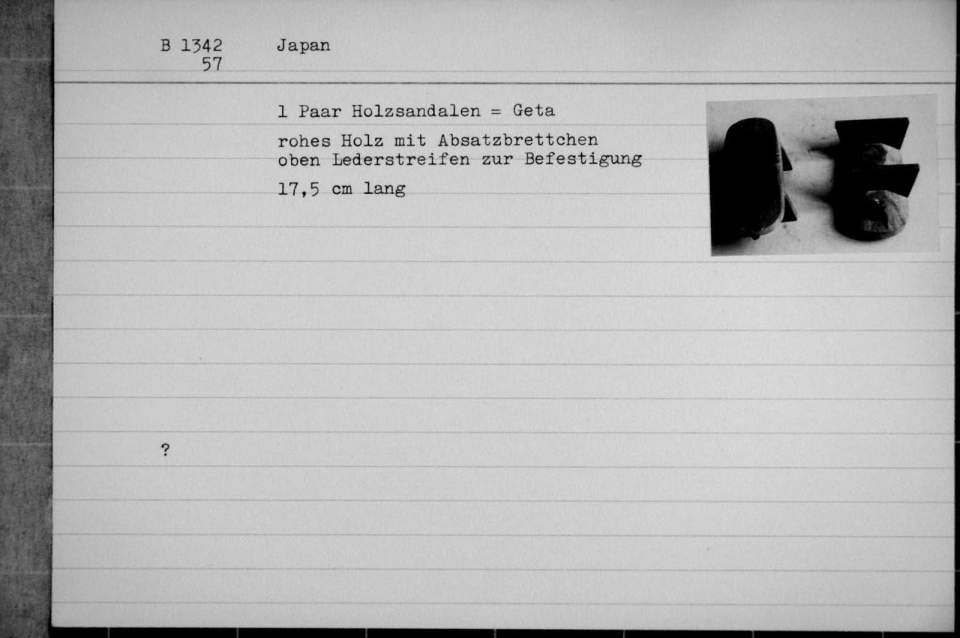 B 1342 Japan
57
1 Paar Holzsandalen = Geta
rohes Holz mit Absatzbrettchen
oben Lederstreifen zur Befestigung
17,5 cm lang
?